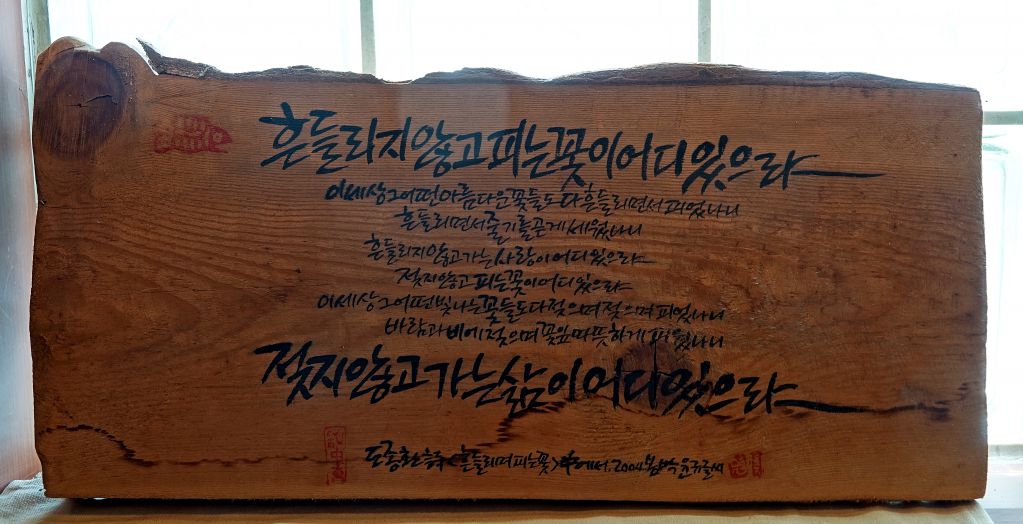 흔들리지 않고 피는 꽃이 어디 있으랴
이 세상 그 어떤 아름다운 꽃들도 다 흔들리면서 피었나니
흔들리면서 줄기를 곧게 세웠나니
흔들리지 않고 가는 사랑이 어디 있으랴
젖지 않고 피는 꽃이 어디 있으랴
이 세상 그 어떤 빛나는 꽃들도 다 젖으며 젖으며 피었나니
바람과 비에 젖으며 꽃잎 따뜻하게 피웠나니
젖지 않고 가는 삶이 어디 있으랴
도종환 <흔들리며 피는 꽃> 에서. 2004 봄 박윤규 글씨